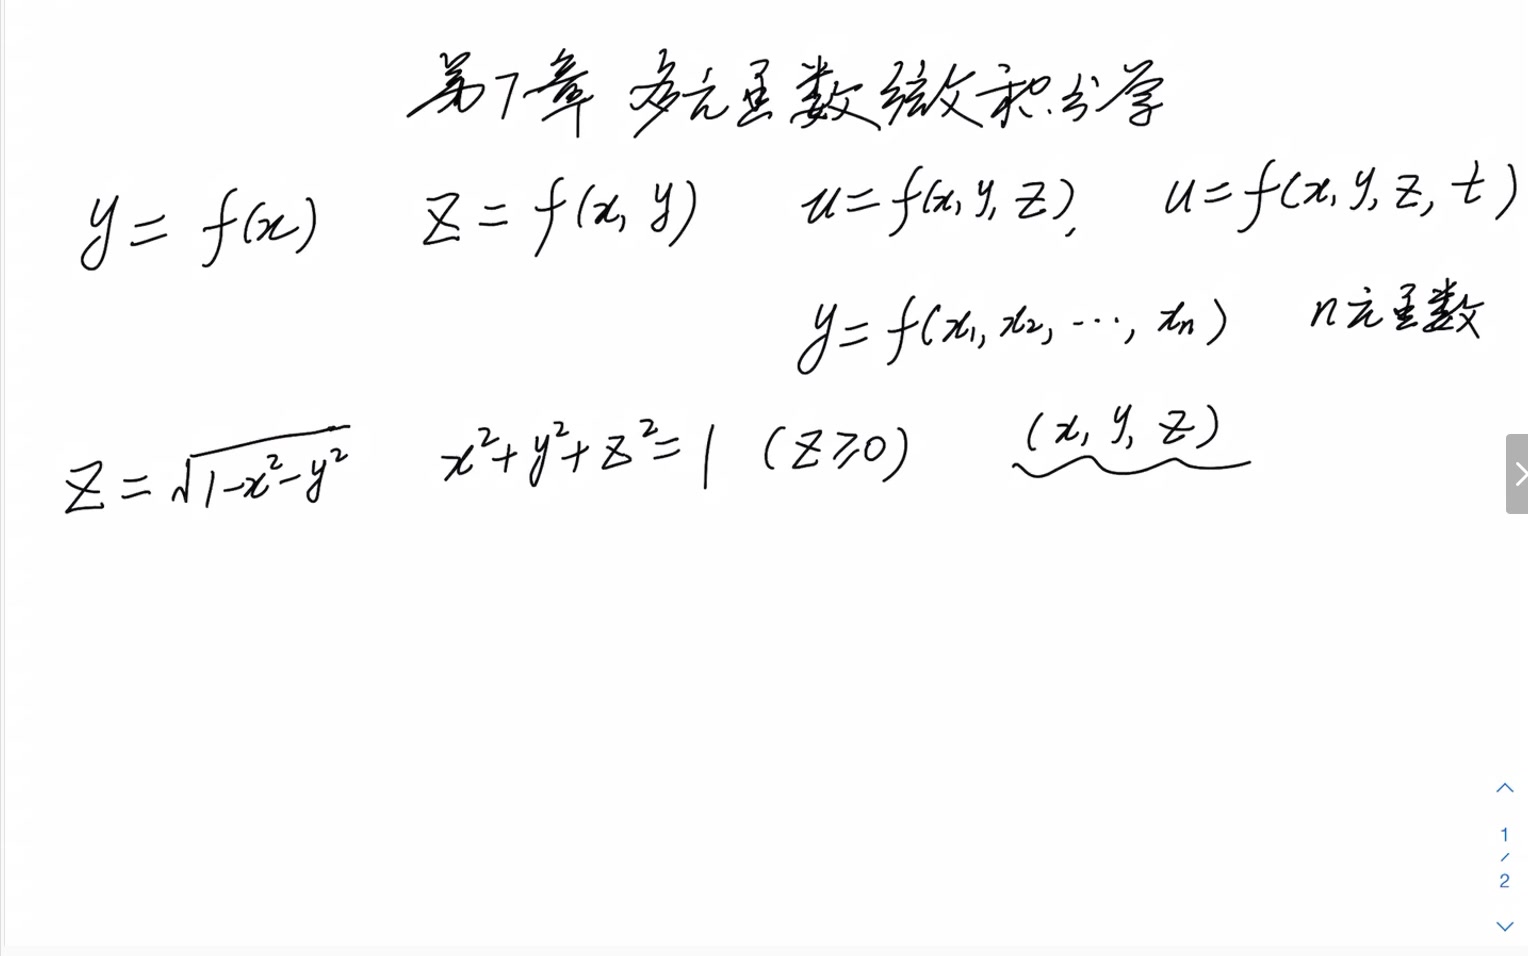 第7章 多元函数微积分学
y = f(x) z = f(x, y) u = f(x, y, z), u = f(x, y, z, t)
y = f(x₁, x₂, ⋯, xₙ) n元函数
z = √(1-x²-y²) x²+y²+z²=1 (z≥0) (x, y, z)
1
/
2